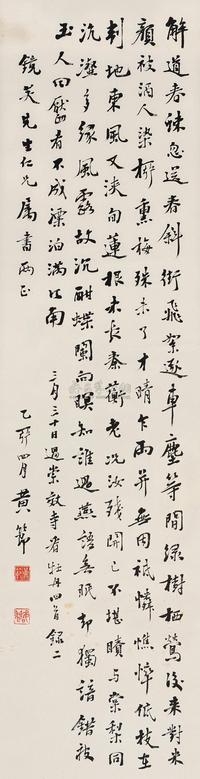 解道春殊忽送春斜街飛絮逐車塵等閒綠樹栖鶯後來對朱
顏被酒人染柳熏梅殊未了才晴乍雨并無因祇憐憔悴低枝在
判地東風又浹旬蓮根未長秦蘅老況汝殘開已不堪賸與棠梨同
沆瀣多緣風露故沉酣蝶闌向暝知誰過燕語無眠却獨諳錯被
玉人回首看不成漂泊滿江南
三月三十日過崇效寺看牡丹四首錄二
鏡芙先生仁兄屬書兩正
四月黃節